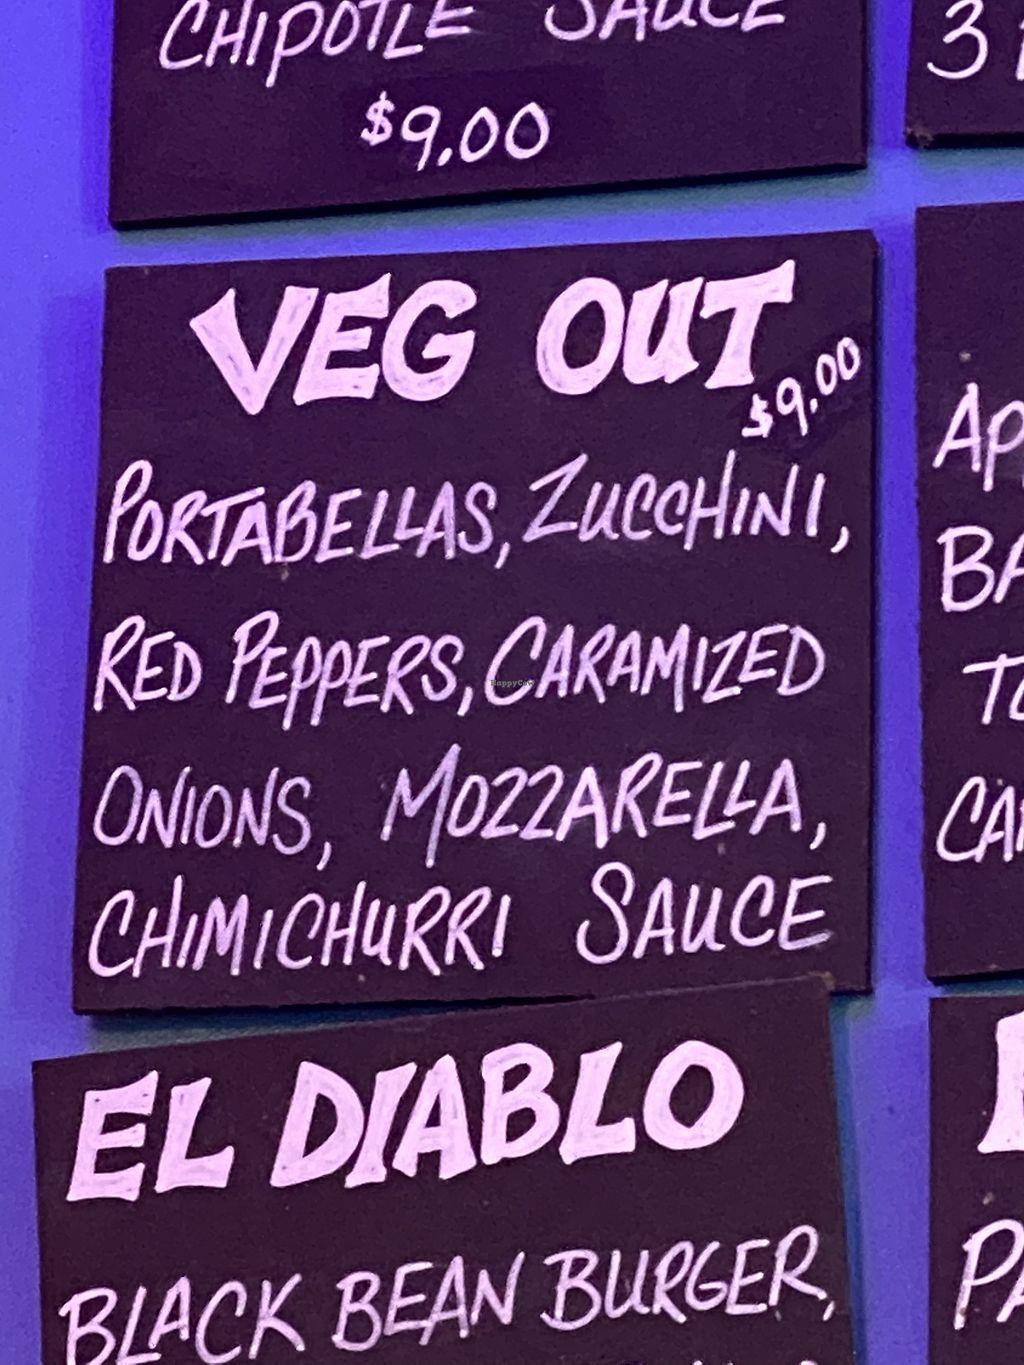 CHIPOTLE SAUCE
$9.00
3
VEG OUT
$9.00
PORTABELLAS, ZUCCHINI,
RED PEPPERS, CARAMIZED
ONIONS, MOZZARELLA,
CHIMICHURRI SAUCE
EL DIABLO
BLACK BEAN BURGER,
AP
BA
TO
CA
PA
HappyCow